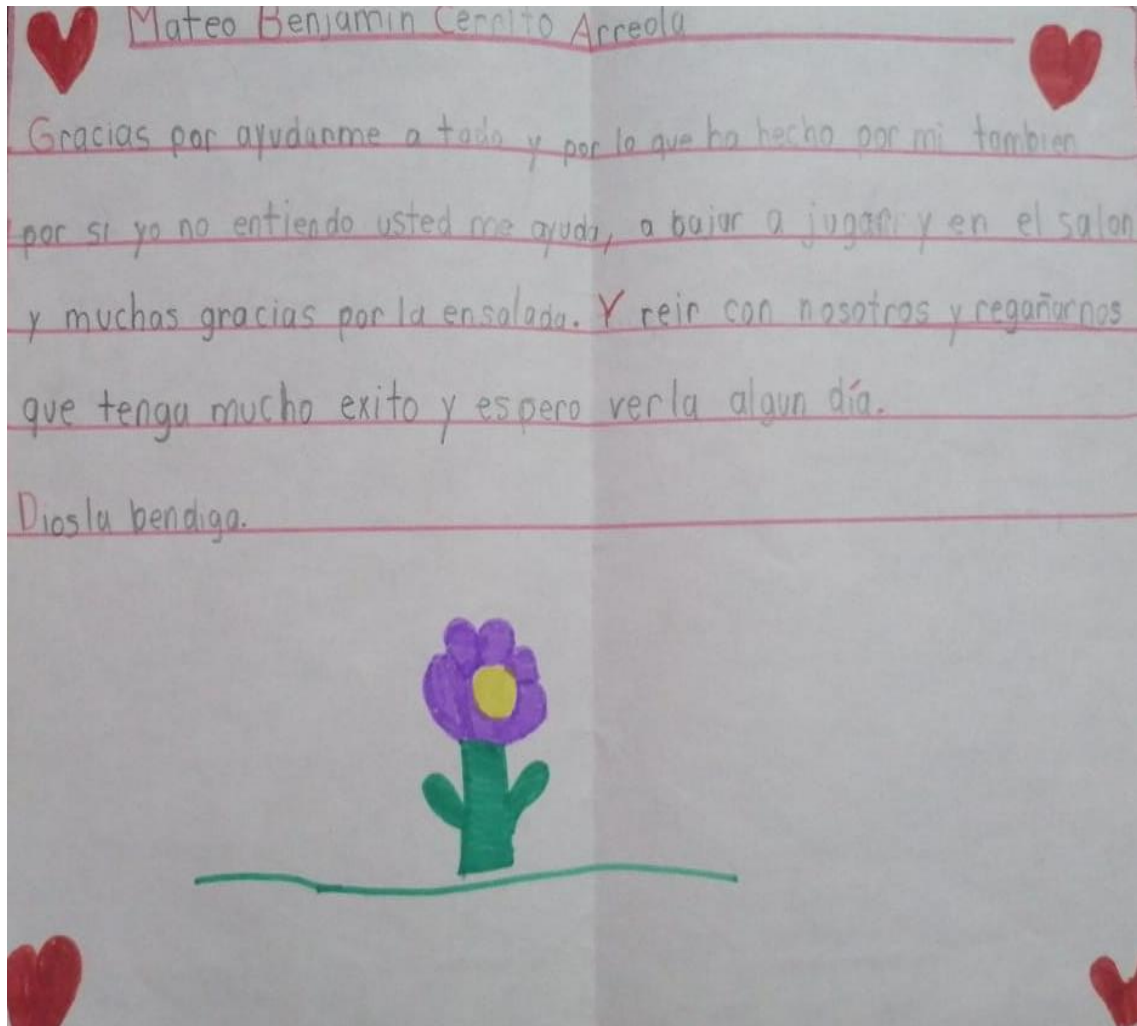 Mateo Benjamin Cerrito Arreola
Gracias por ayudarme a todo y por lo que ha hecho por mi tambien
por si yo no entiendo usted me ayuda, a bajar a jugar y en el salon
y muchas gracias por la ensalada. Y reir con nosotros y regañarnos
que tenga mucho exito y espero verla algun día.
Dios la bendiga.